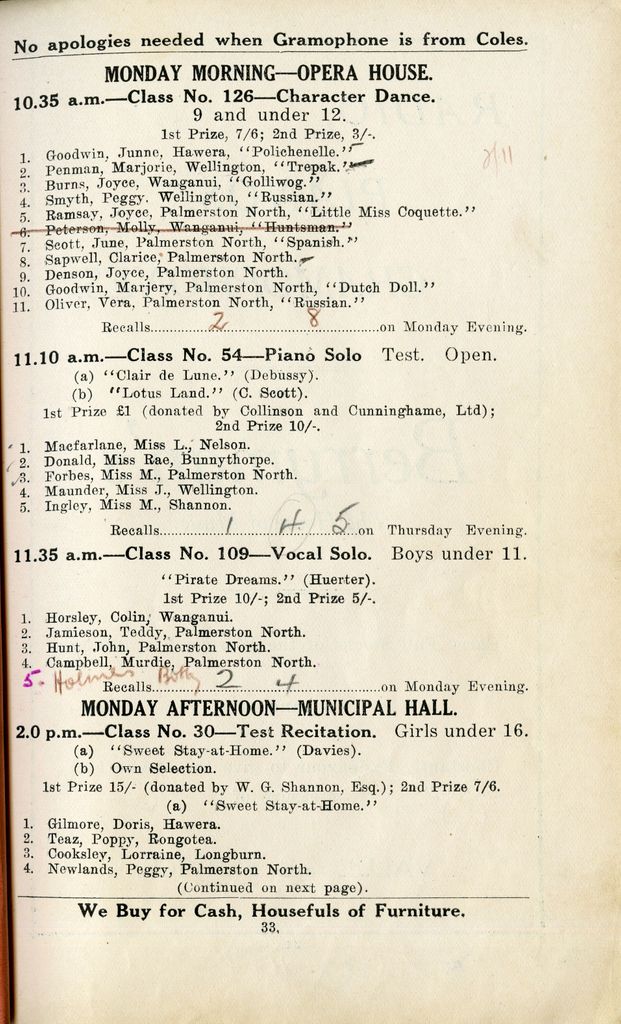 No apologies needed when Gramophone is from Coles.
MONDAY MORNING—OPERA HOUSE.
10.35 a.m.—Class No. 126—Character Dance.
9 and under 12.
1st Prize, 7/6; 2nd Prize, 3/-.
1. Goodwin, Junne, Hawera, "Polichenelle."
2. Penman, Marjorie, Wellington, "Trepak."
3. Burns, Joyce, Wanganui, "Golliwog."
4. Smyth, Peggy. Wellington, "Russian."
5. Ramsay, Joyce, Palmerston North, "Little Miss Coquette."
6. Peterson, Molly, Wanganui, "Huntsman."
7. Scott, June, Palmerston North, "Spanish."
8. Sapwell, Clarice, Palmerston North.
9. Denson, Joyce, Palmerston North.
10. Goodwin, Marjery, Palmerston North, "Dutch Doll."
11. Oliver, Vera, Palmerston North, "Russian."
Recalls 2 8 on Monday Evening.
11.10 a.m.—Class No. 54—Piano Solo Test. Open.
(a) "Clair de Lune." (Debussy).
(b) "Lotus Land." (C. Scott).
1st Prize £1 (donated by Collinson and Cunninghame, Ltd);
2nd Prize 10/-.
1. Macfarlane, Miss L., Nelson.
2. Donald, Miss Rae, Bunnythorpe.
3. Forbes, Miss M., Palmerston North.
4. Maunder, Miss J., Wellington.
5. Ingley, Miss M., Shannon.
Recalls 1 4 5 on Thursday Evening.
11.35 a.m.—Class No. 109—Vocal Solo. Boys under 11.
"Pirate Dreams." (Huerter).
1st Prize 10/-; 2nd Prize 5/-.
1. Horsley, Colin, Wanganui.
2. Jamieson, Teddy, Palmerston North.
3. Hunt, John, Palmerston North.
4. Campbell, Murdie, Palmerston North.
5. Holmes
Recalls 2 4 on Monday Evening.
MONDAY AFTERNOON—MUNICIPAL HALL.
2.0 p.m.—Class No. 30—Test Recitation. Girls under 16.
(a) "Sweet Stay-at-Home." (Davies).
(b) Own Selection.
1st Prize 15/- (donated by W. G. Shannon, Esq.); 2nd Prize 7/6.
(a) "Sweet Stay-at-Home."
1. Gilmore, Doris, Hawera.
2. Teaz, Poppy, Rongotea.
3. Cooksley, Lorraine, Longburn.
4. Newlands, Peggy, Palmerston North.
(Continued on next page).
We Buy for Cash, Housefuls of Furniture.
33.